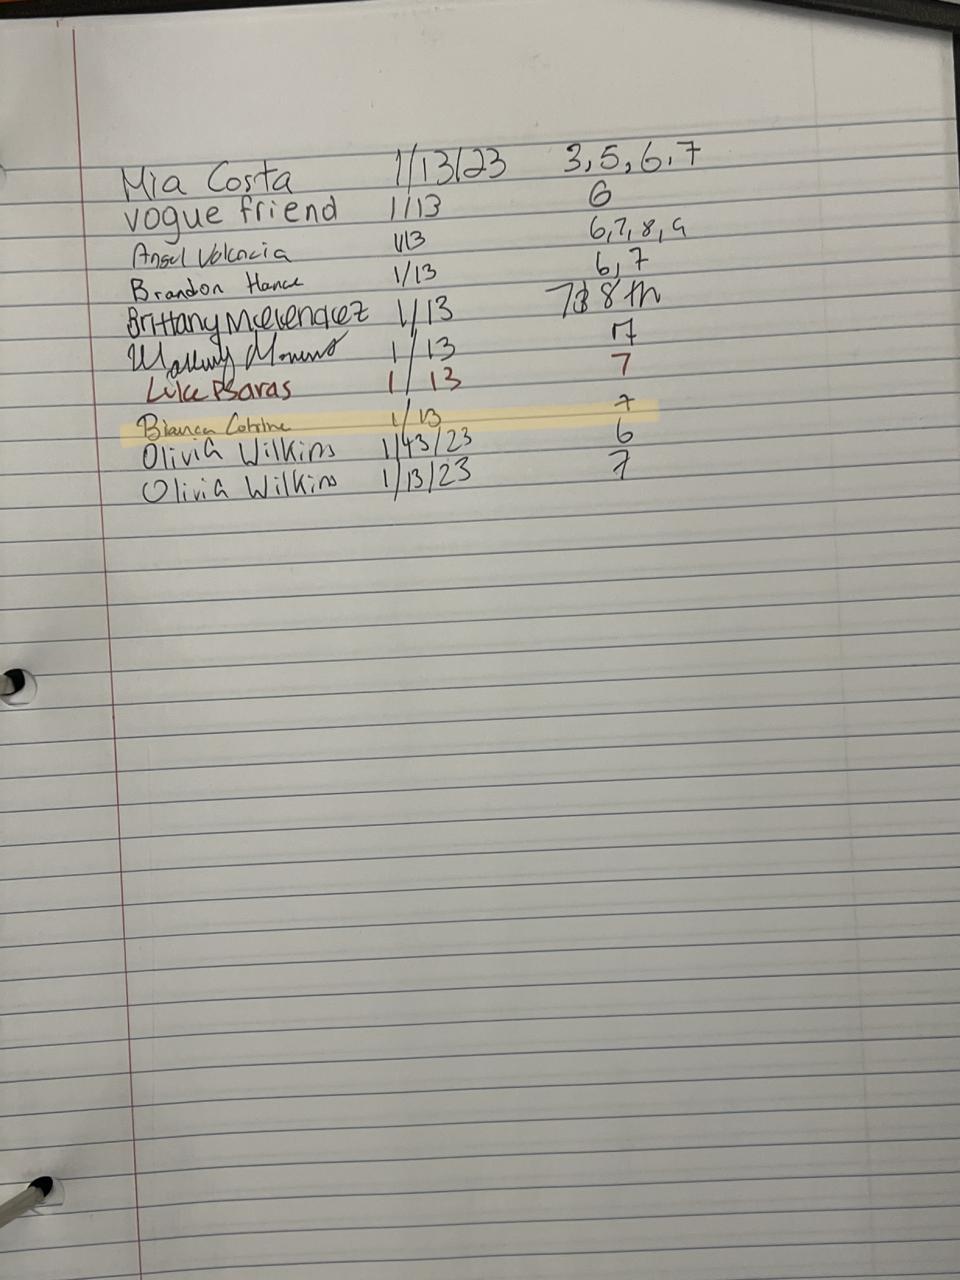 Mia Costa 1/13/23 3,5,6,7
vogue friend 1/13 6
Angel Valencia 1/13 6,7,8,9
Brandon Hance 1/13 6,7
Brittany Melendez 1/13 7&8th
1/13 7
Luke Psaras 1/13 7
Bianca 1/13 7
Olivia Wilkins 1/13/23 6
Olivia Wilkins 1/13/23 7